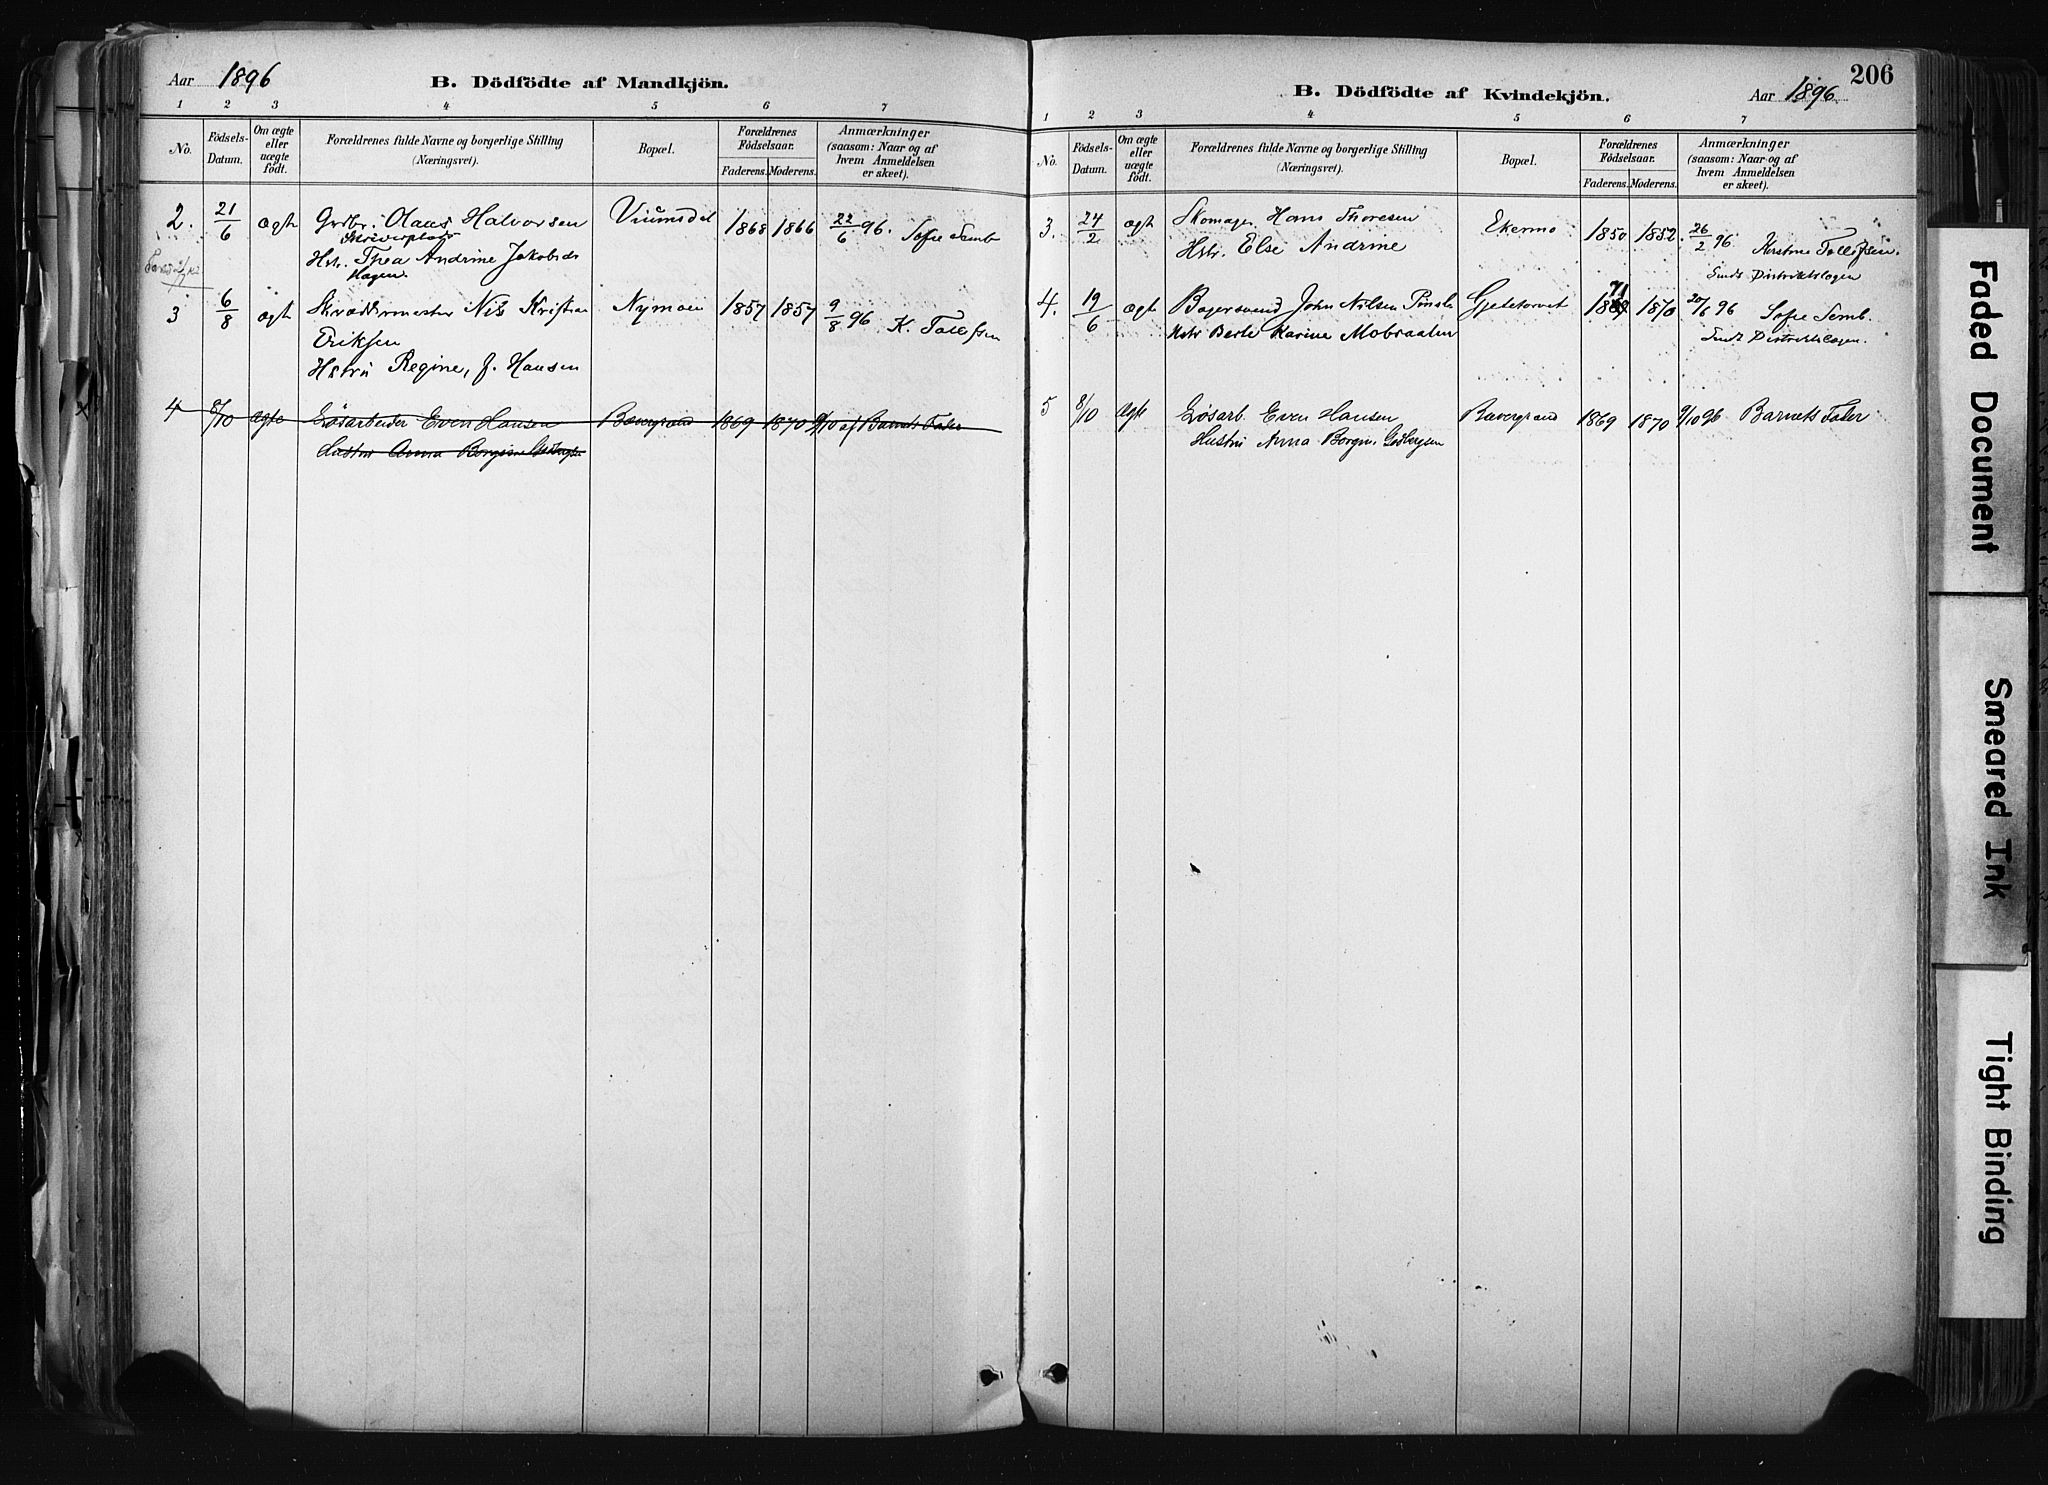 Aar 1896
B. Dödfödte af Mandkjön.
1 2 3 4 5 6 7
No.
Födsels-Datum.
Om ægte eller uægte födt.
Forældrenes fulde Navne og borgerlige Stilling (Næringsvei).
Bopæl.
Forældrenes Födselsaar.
Faderens. Moderens.
Anmærkninger (saasom: Naar og af hvem Anmeldelsen er skeet).
2. 21/6 ægt Grdbr. Olaus Halvorsen Viumsdal 1868 1866 22/6 96. Sofie Temb
Hstr. Thea Andrine Jakobsd.
Hagen
3 6/8 ægt Skræddermester Nils Kristian Nymoen 1857 1857 9/8 96 K. Tollefsen
Eriksen
Hstru Regine, f. Hansen
4 8/10 ægte Løsarbeider Even Hansen Bævergrænd 1869 1870 9/10 af Barnets Fader
Hustru Anna Borgine Gulbrandsen
206
B. Dödfödte af Kvindekjön.
Aar 1896
1 2 3 4 5 6 7
No.
Födsels-Datum.
Om ægte eller uægte födt.
Forældrenes fulde Navne og borgerlige Stilling (Næringsvei).
Bopæl.
Forældrenes Födselsaar.
Faderens. Moderens.
Anmærkninger (saasom: Naar og af hvem Anmeldelsen er skeet).
3. 24/2 ægt Skomager Hans Thoresen Ekermo 1850 1852. 26/2 96 Kirstine Tollefsen.
Hstr. Else Andrine
Smds Distriktslægen
71
4. 19/6 ægt Bagersvend John Nilsen Gjetetorvet 1870 20/6 96 Sofie Temb.
Hstr Berte Karine Mobraaten
Smds Distriktslægen.
5 8/10 ægte Løsarb. Even Hansen Bævergrænd 1869 1870 9/10 96 Barnets Fader
Hustru Anna Borgine
Faded Document
Smeared Ink
Tight Binding